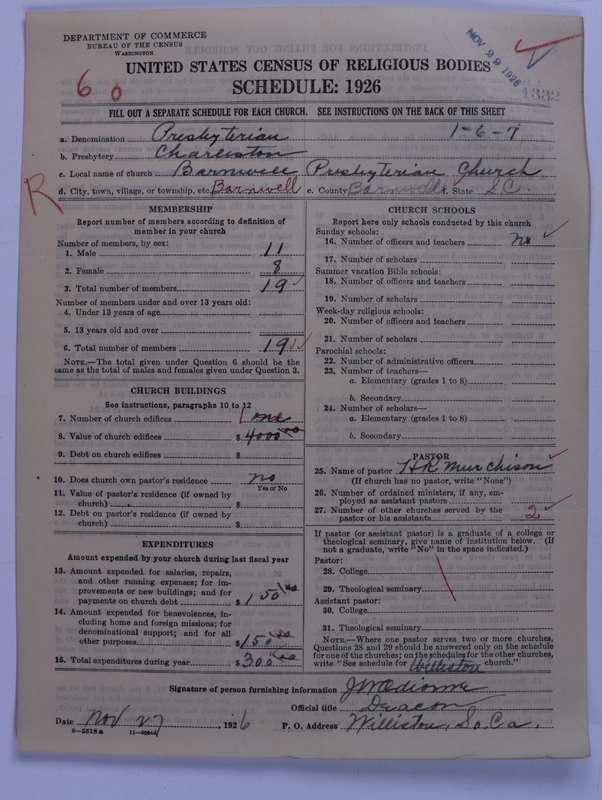 DEPARTMENT OF COMMERCE
BUREAU OF THE CENSUS
WASHINGTON
NOV 29 1926
4332
60
UNITED STATES CENSUS OF RELIGIOUS BODIES
SCHEDULE: 1926
FILL OUT A SEPARATE SCHEDULE FOR EACH CHURCH. SEE INSTRUCTIONS ON THE BACK OF THIS SHEET
a. Denomination Presbyterian 1-6-7
b. Presbytery Charleston
c. Local name of church Barnwell Presbyterian Church
R
d. City, town, village, or township, etc. Barnwell e. County Barnwell f. State S.C.
MEMBERSHIP
Report number of members according to definition of member in your church
Number of members, by sex:
1. Male 11
2. Female 8
3. Total number of members 19
Number of members under and over 13 years old:
4. Under 13 years of age
5. 13 years old and over
6. Total number of members 19
NOTE.—The total given under Question 6 should be the
same as the total of males and females given under Question 3.
CHURCH BUILDINGS
See instructions, paragraphs 10 to 12
7. Number of church edifices 1 one
8. Value of church edifices $ 4000 00
9. Debt on church edifices $
10. Does church own pastor's residence no
Yes or No
11. Value of pastor's residence (if owned by
church) $
12. Debt on pastor's residence (if owned by
church) $
EXPENDITURES
Amount expended by your church during last fiscal year
13. Amount expended for salaries, repairs,
and other running expenses; for im-
provements or new buildings; and for
payments on church debt $ 150 00
14. Amount expended for benevolences, in-
cluding home and foreign missions; for
denominational support; and for all
other purposes $ 150 00
15. Total expenditures during year $ 300 00
CHURCH SCHOOLS
Report here only schools conducted by this church
Sunday schools:
16. Number of officers and teachers no
17. Number of scholars
Summer vacation Bible schools:
18. Number of officers and teachers
19. Number of scholars
Week-day religious schools:
20. Number of officers and teachers
21. Number of scholars
Parochial schools:
22. Number of administrative officers
23. Number of teachers—
a. Elementary (grades 1 to 8)
b. Secondary
24. Number of scholars—
a. Elementary (grades 1 to 8)
b. Secondary
PASTOR
25. Name of pastor H R Murchison
(If church has no pastor, write "None")
26. Number of ordained ministers, if any, em-
ployed as assistant pastors
27. Number of other churches served by the
pastor or his assistants 2
If pastor (or assistant pastor) is a graduate of a college or
theological seminary, give name of institution below. (If
not a graduate, write "No" in the space indicated.)
Pastor:
28. College
29. Theological seminary
Assistant pastor:
30. College
31. Theological seminary
NOTE.—Where one pastor serves two or more churches,
Questions 28 and 29 should be answered only on the schedule
for one of the churches; on the schedules for the other churches,
write "See schedule for Williston church."
Signature of person furnishing information J W Odiorne
Official title Deacon
Date Nov 27, 1926 P. O. Address Williston, So. Ca.
8—5518a